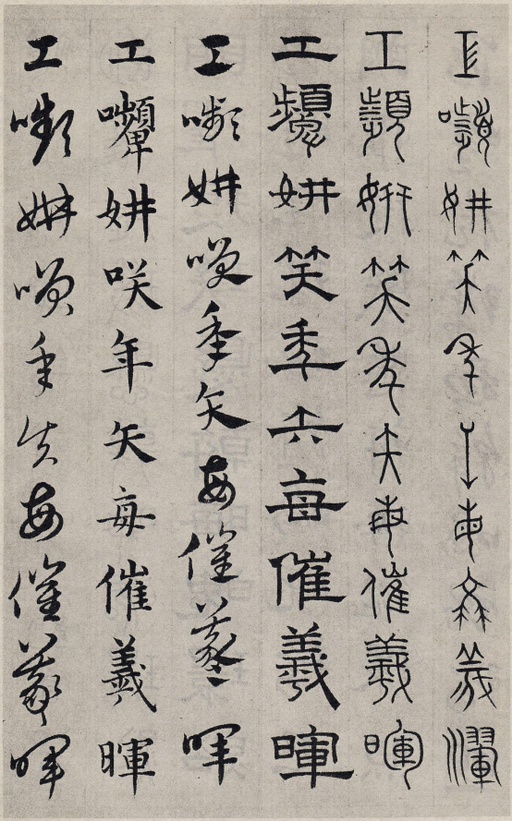 工嚬妍笑年矢每催羲暉
工頻妍笑年矢每催羲暉
工顰妍笑年矢每催羲暉
工嚬妍咲年矢每催羲暉
工嚬妍咲年矢每催羲暉
工嚬妍咲年矢每催羲暉